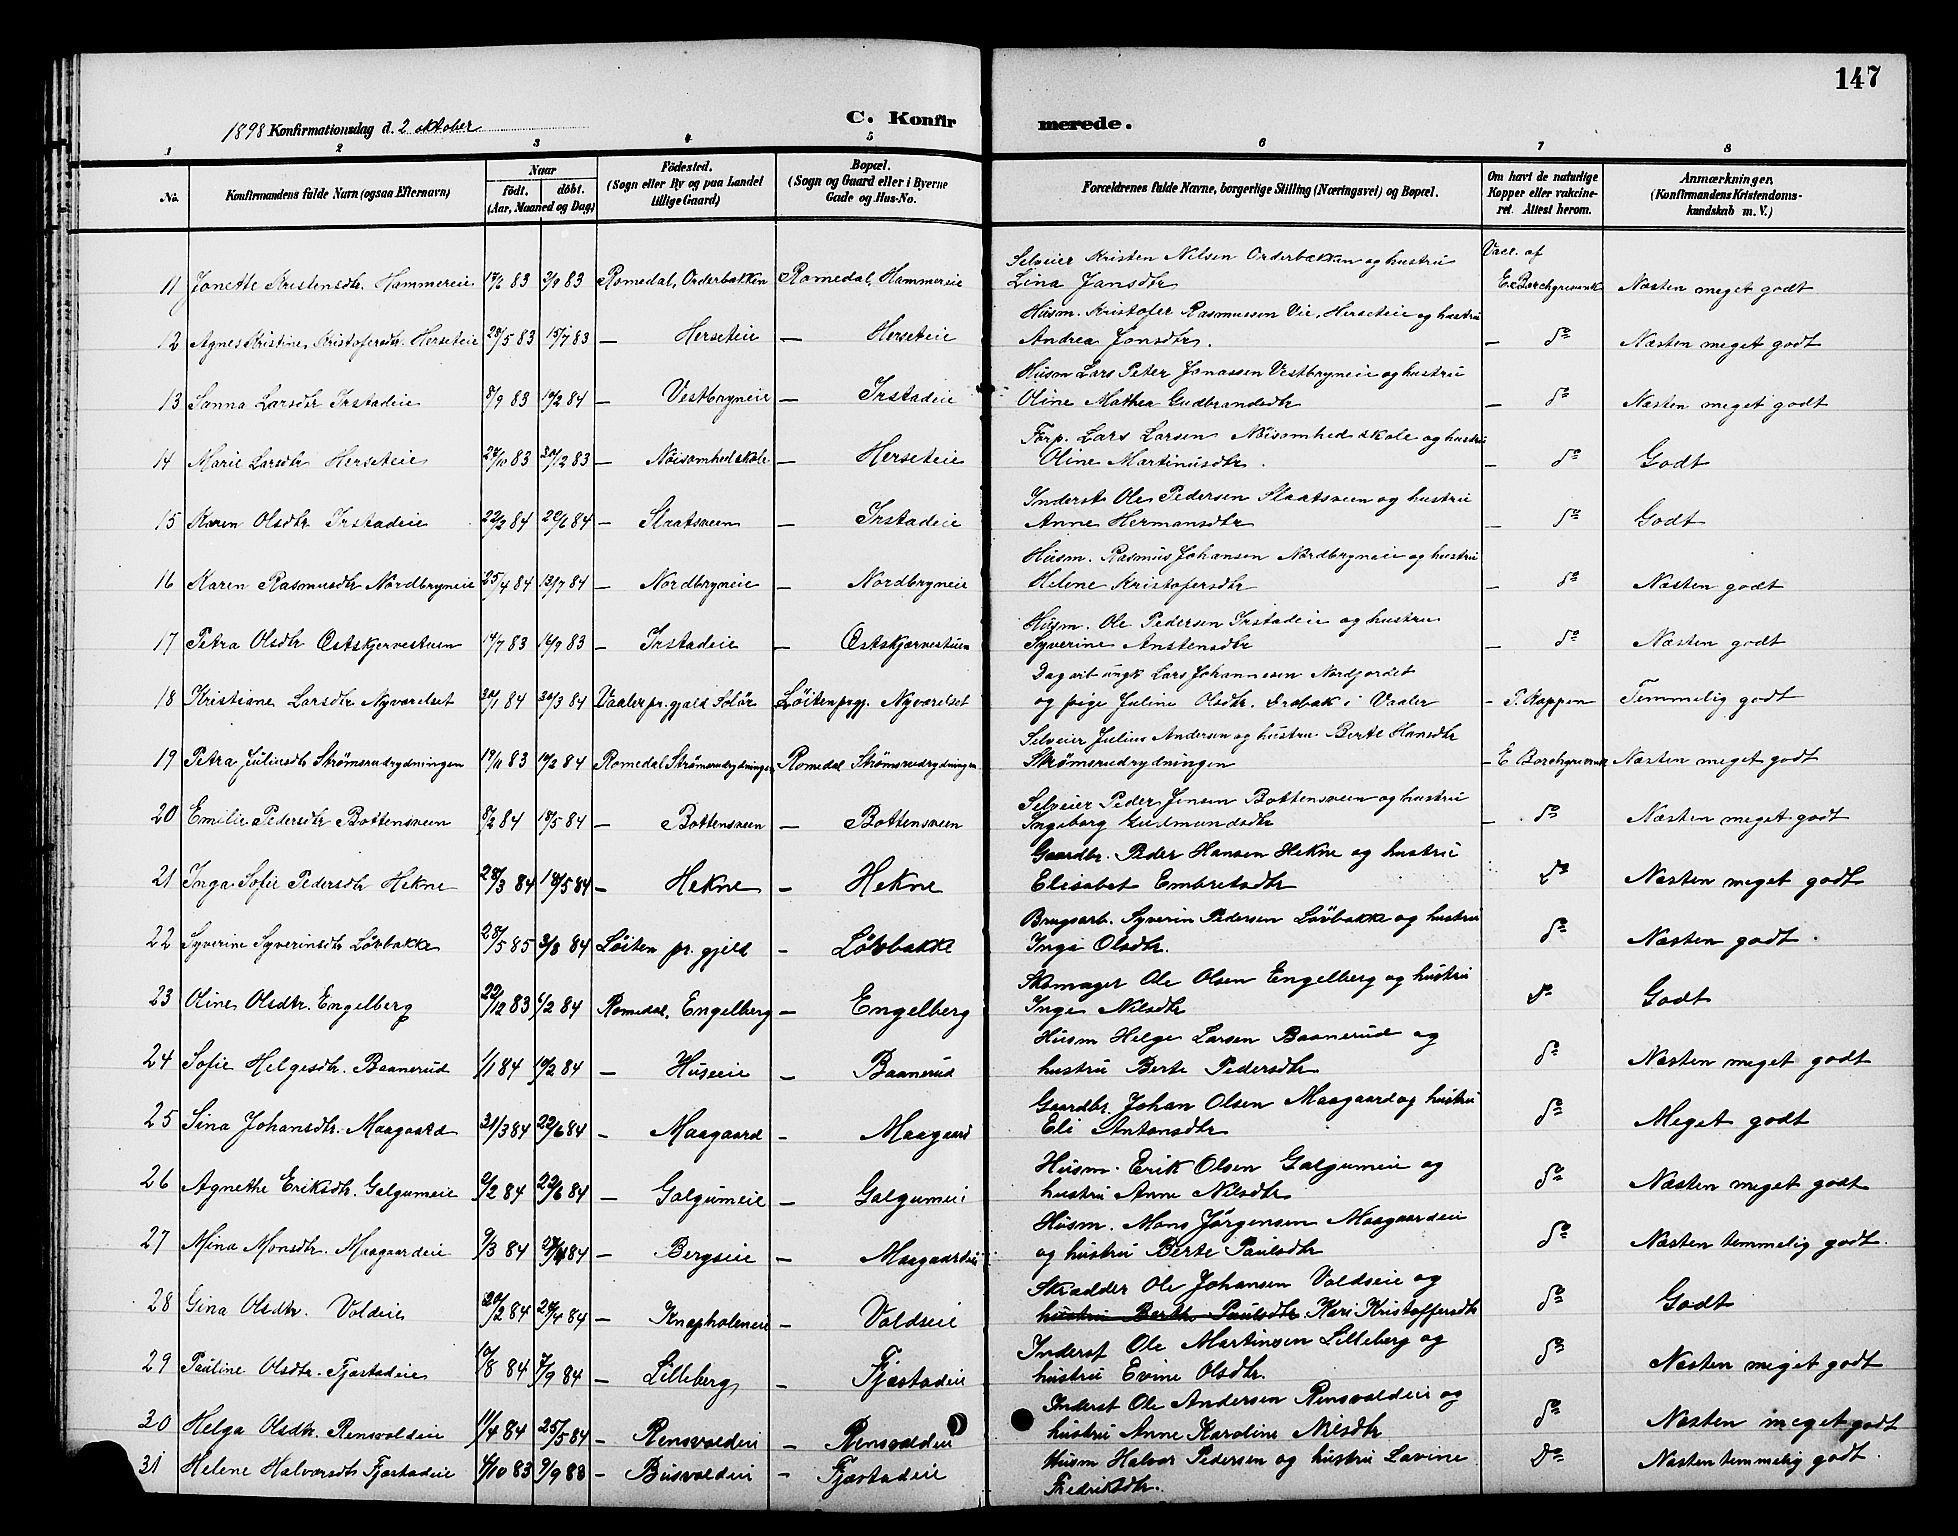 147
1898 Konfirmationsdag d. 2 oktober
C. Konfirmerede.
1 2 3 4 5 6 7 8
No. Konfirmandens fulde Navn (ogsaa Efternavn) Naar födt. döbt. (Aar, Maaned og Dag) Födested. (Sogn eller By og paa Landet tillige Gaard) Bopæl. (Sogn og Gaard eller i Byerne Gade og Hus-No. Forældrenes fulde Navne, borgerlige Stilling (Næringsvei) og Bopæl. Om havt de naturlige Kopper eller vakcineret. Attest herom. Anmærkninger, (Konfirmandens Kristendomskundskab m. V.)
Selveier Kristen Nilsen Orderbakken og hustru Vacc. af
11 Jonette Kristensdtr. Hammereie 83 2/9 83 Romedal, Orderbakken Romedal, Hammereie Lina Jansdtr E. Borchgrevink Næsten meget godt
Husm. Kristofer Rasmussen Vie, Herseteie og hustru
12 Agnes Kristine Kristofersdtr. Herseteie 28/5 83 15/7 83 — Herseteie — Herseteie Andrea Jonsdtr. — do Næsten meget godt
Husm Lars Peter Jonassen Vestbryneie og hustru
13 Sanna Larsdtr Irstadeie 8/9 83 10/2 84 — Vestbryneie — Irstadeie Oline Mathea Gudbrandsdtr — do Næsten meget godt
Forp. Lars Larsen Nöisomhed skole og hustru
14 Marie Larsdtr Herseteie 83 30/12 83 — Nöisomhed skole — Herseteie Oline Martinusdtr. — do Godt
Inderst Ole Pedersen Slaatsveen og hustru
15 Karen Olsdtr Irstadeie 22/2 84 29/6 84 — Slaatsveen — Irstadeie Anne Hermansdtr — do Godt
Husm. Rasmus Johansen Nordbryneie og hustru
16 Karen Rasmusdtr Nordbryneie 25/4 84 13/7 84 — Nordbryneie — Nordbryneie Helene Kristofersdtr — do Næsten godt
Husm. Ole Pedersen Irstadeie og hustru
17 Petra Olsdtr Östskjervestuen 14/7 83 16/9 83 — Irstadeie — Östskjervestuen Syverine Anstensdtr — do Næsten godt
Dagarb. ungk. Lars Johannesen Nordjordet
18 Kristiane Larsdtr Nyværelset 30/1 84 30/3 84 Vaaler pr. gjeld Solör Löiten prgj. Nyværelset og pige Juline Olsdtr. i Vaaler — Temmelig godt
Selveier Julius Andersen og hustru Berte Hansdtr
19 Petra Juliusdtr Strømsrudrydningen 19/11 83 10/2 84 Romedal Strømsrudrydningen Romedal Strømsrudrydningen Strømsrudrydningen — E Borchgrevink Næsten meget godt
Selveier Peder Jensen Bottensveen og hustru
20 Emilie Pedersdtr Bottensveen 8/2 84 18/5 84 — Bottensveen — Bottensveen Ingeborg Gudmundsdtr — do Næsten meget godt
Gaardbr. Peder Hansen Hekne og hustru
21 Inga Sofie Pedersdtr Hekne 28/3 84 18/5 84 — Hekne — Hekne Elisabet Embretsdtr do Næsten meget godt
Brugsarb. Syverin Pedersen Lövbakke og hustru
22 Syverine Syverinsdtr Lövbakke 28/5 85 3/8 84 Löiten pr. gjeld — Lövbakke Inga Olsdtr. do Næsten godt.
Skomager Ole Olsen Engelberg og hustru
23 Oline Olsdtr. Engelberg 22/12 83 /2 84 Romedal, Engelberg — Engelberg Inga Nilsdtr do Godt
Husm Helge Larsen Baanerud og
24 Sofie Helgesdtr. Baanerud 1/1 84 10/2 84 — Huseie — Baanerud hustru Berte Pedersdtr do Næsten meget godt
Gaardbr. Johan Olsen Maagaard og hustru
25 Sina Johansdtr. Maagaard 31/3 84 22/6 84 — Maagaard — Maagaard Eli Antonsdtr do Meget godt
Husm. Erik Olsen Galgumeie og
26 Agnethe Eriksdtr. Galgumeie /2 84 22/6 84 — Galgumeie — Galgumeie hustru Anne Nilsdtr do Næsten meget godt
Husm. Mons Jörgensen Maagaardeie
27 Mina Monsdtr. Maagaardeie 9/3 84 84 — Bergseie — Maagaardeie og hustru Berte Paulsdtr do Næsten temmelig godt.
Skrædder Ole Johansen Voldseie og
28 Gina Olsdtr. Voldeie 20/2 84 84 — Knapholeneie — Voldseie hustru Berthe Paulsdtr Kari Kristoffersdtr do Godt
Inderst Ole Martinsen Lilleberg og
29 Pauline Olsdtr. Fjæstadeie 10/8 84 7/9 84 — Lilleberg — Fjæstadeie hustru Evine Olsdtr. do Næsten meget godt
Inderst Ole Andersen Rensvoldeie og
30 Helga Olsdtr. Rensvoldeie 11/4 84 25/5 84 — Rensvoldeie — Rensvoldeie hustru Anne Karoline Nilsdtr do Næsten meget godt
31 Helene Halvorsdtr Fjæstadeie /10 83 9/9 83 — Busvoldeie — Fjæstadeie Husm Halvor Pedersen og hustru Lavine do Næsten temmelig godt.
Fredriksdtr.